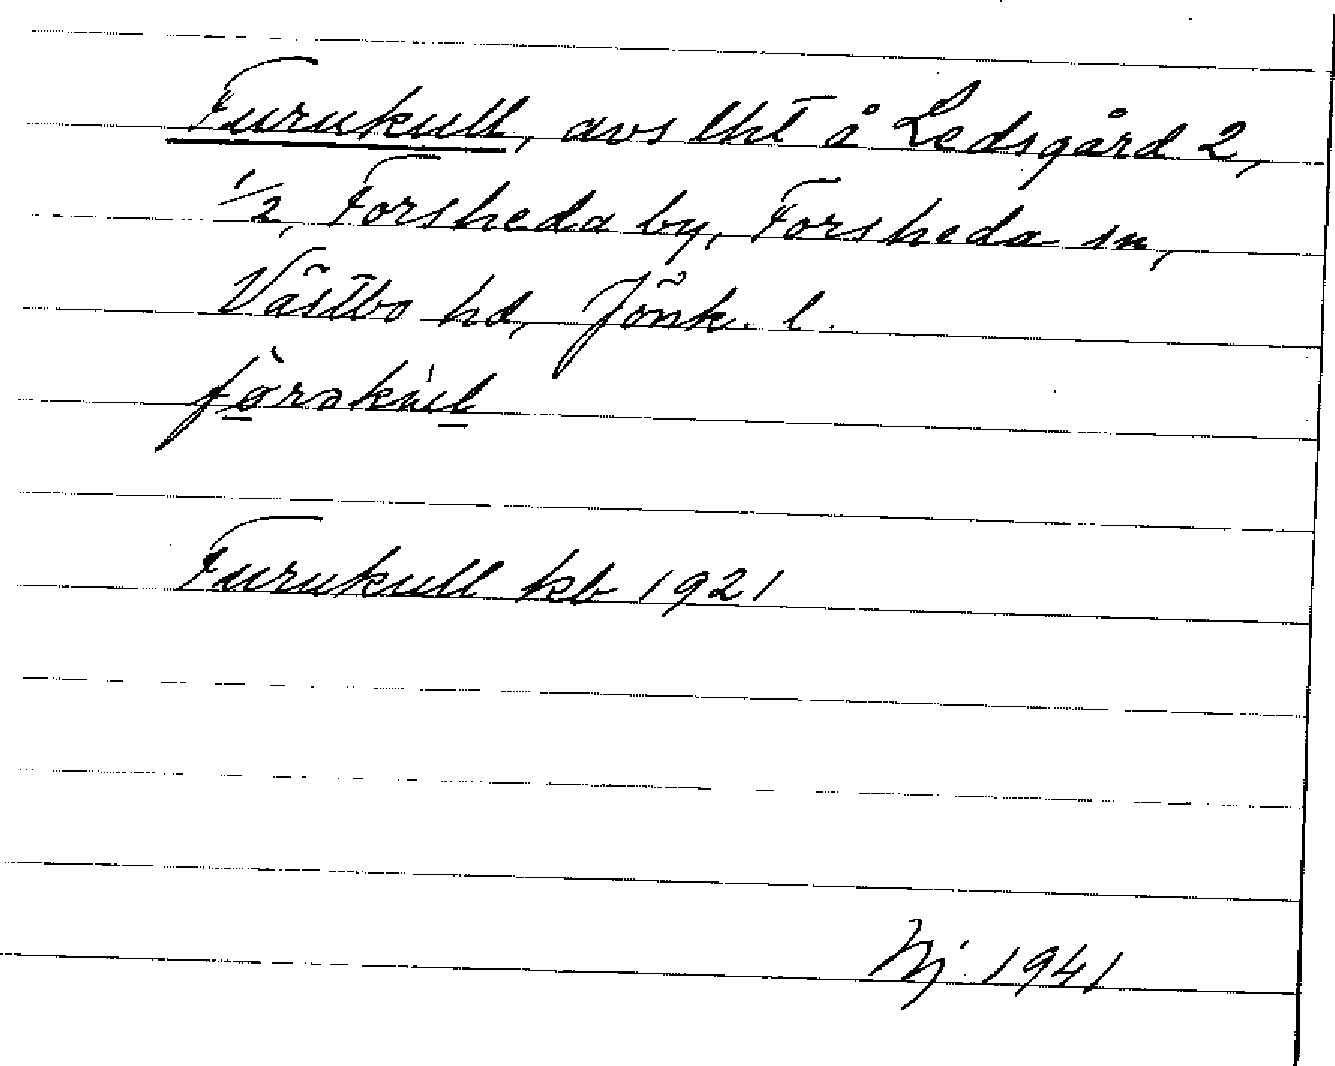 Furukull, avs lht å Ledsgård 2,
1/2, Forsheda by, Forsheda sn,
Västbo hd, Jönk. l.
Furukull kb 1921
1941